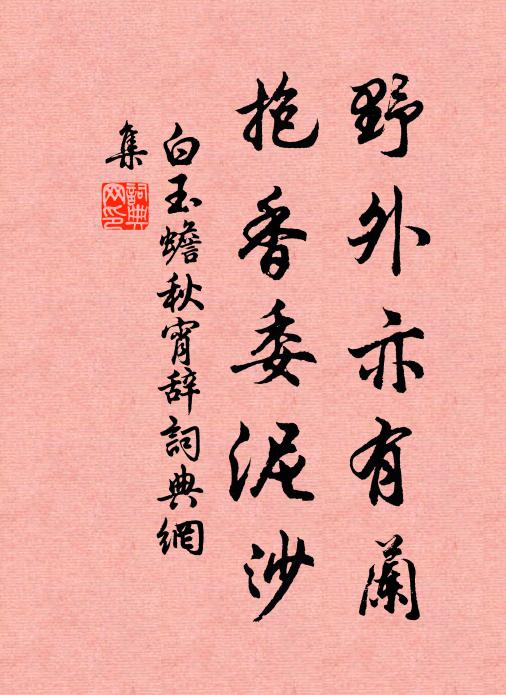 野外亦有蘭
抱香委泥沙
白玉蟾秋宵辞詞典網
集
詞典网印